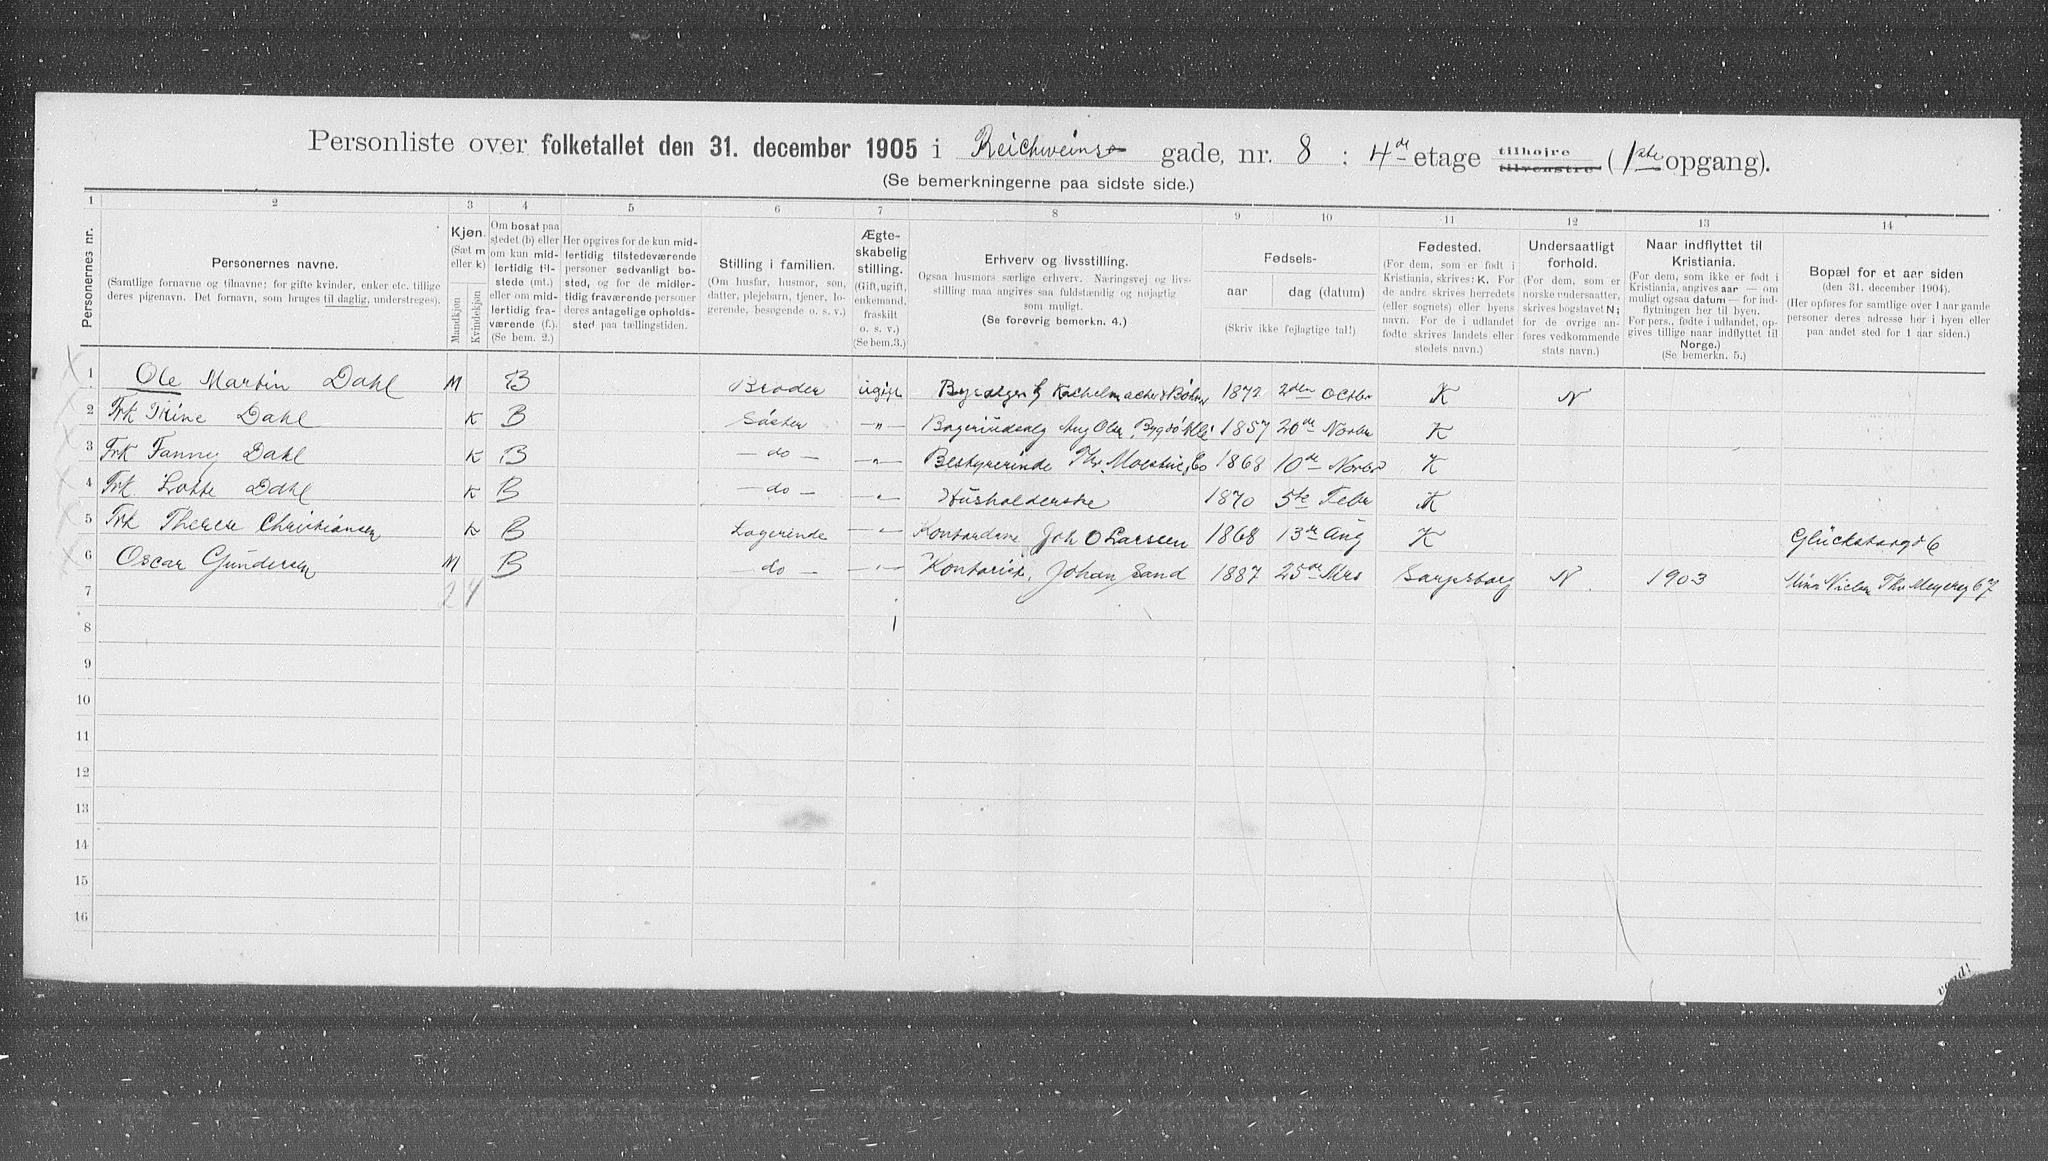 Personliste over folketallet den 31. december 1905 i Reichweins gade, nr. 8 : 4de etage tilhøjre tilvenstre (1ste opgang).
(Se bemerkningerne paa sidste side.)
1 2 3 4 5 6 7 8 9 10 11 12 13 14
Personernes nr.
Personernes navne.
(Samtlige fornavne og tilnavne; for gifte kvinder, enker etc. tillige
deres pigenavn. Det fornavn, som bruges til daglig, understreges).
Kjøn.
(Sæt m
eller k)
Mandkjøn
Kvindekjøn
Om bosat paa
stedet (b) eller
om kun mid-
lertidig til-
stede (mt.)
eller om mid-
lertidig fra-
værende (f.).
(Se bem. 2.)
Her opgives for de kun mid-
lertidig tilstedeværende
personer sedvanligt bo-
sted, og for de midler-
tidig fraværende personer
deres antagelige opholds-
sted paa tællingstiden.
Stilling i familien.
(Om husfar, husmor, søn,
datter, plejebarn, tjener, lo-
gerende, besøgende o. s. v.)
Ægte-
skabelig
stilling.
(Gift, ugift,
enkemand,
fraskilt
o. s. v.)
(Se bem.3.)
Erhverv og livsstilling.
Ogsaa husmors særlige erhverv. Næringsvej og livs-
stilling maa angives saa fuldstændig og nøjagtig
som muligt.
(Se forøvrig bemerkn. 4.)
Fødsels-
aar
dag (datum)
(Skriv ikke fejlagtige tal!)
Fødested.
(For dem, som er født i
Kristiania, skrives: K. For
de andre skrives herredets
(eller sognets) eller byens
navn. For de i udlandet
fødte skrives landets eller
stedets navn.)
Undersaatligt
forhold.
(For dem, som er
norske undersaatter,
skrives bogstavet N;
for de øvrige an-
føres vedkommende
stats navn.)
Naar indflyttet til
Kristiania.
(For dem, som ikke er født i
Kristiania, angives aar — om
muligt ogsaa datum — for ind-
flytningen her til byen.
For pers., fødte i udlandet, op-
gives tillige naar indflyttet til
Norge.)
(Se bemerkn. 5.)
Bopæl for et aar siden
(den 31. december 1904).
(Her opføres for samtlige over 1 aar gamle
personer deres adresse her i byen eller
paa andet sted for 1 aar siden.)
1 Ole Martin Dahl M B Broder ugift 1872 2den Octbr K N
2 Frk Trine Dahl K B Søster — " — 1857 20de Novbr K
3 Frk Fanny Dahl K B — do — — " — Bestyrerinde 1868 10de Novbr K
4 Frk Lotte Dahl K B — do — — " — Husholderske 1870 5te Febr K
5 Frk Therese Christiansen K B Logerinde — " — Kontordame Joh O Larseen 1868 13de Aug K Glücksborgg 6
6 Oscar Gundersen M B — do — — " — Kontorist, Johan Sand 1887 25de Mrs Sarpsborg N 1903 Thv Meyersg 67
7 24
8
9
10
11
12
13
14
15
16
vend!